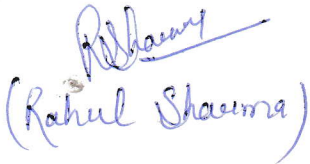 RSharma
(Rahul Sharma)